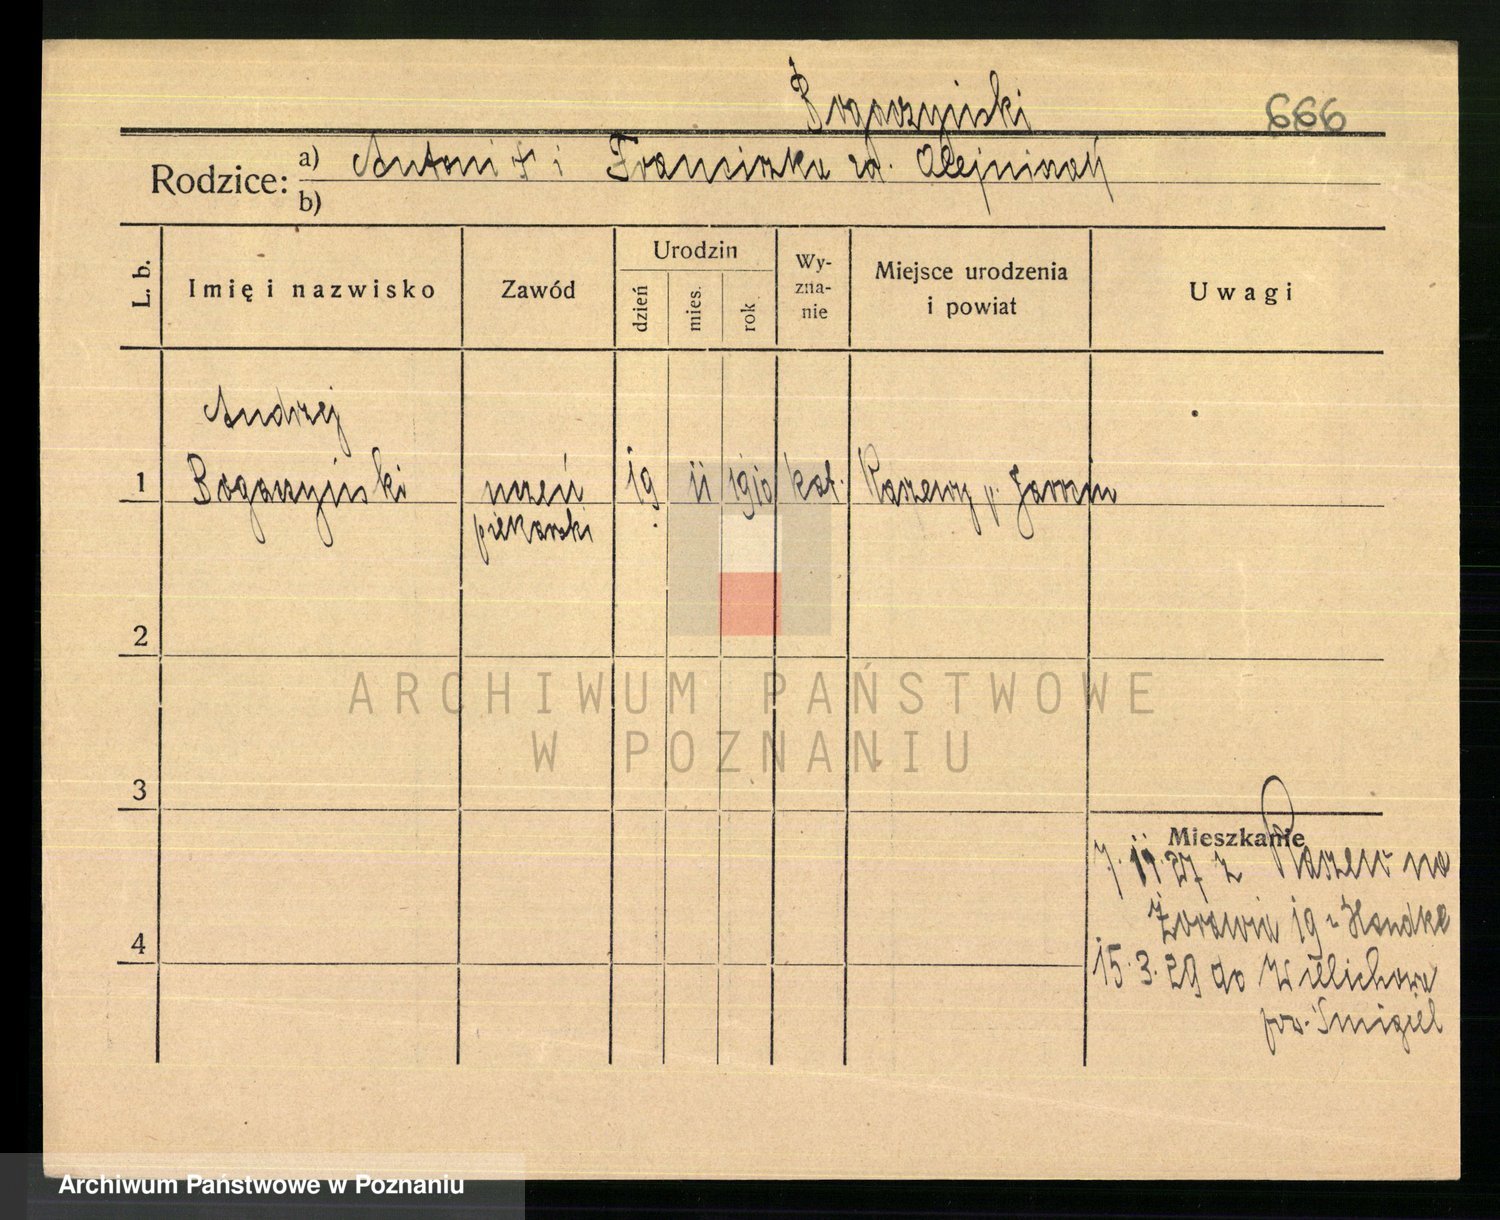 Bogaczyński
666
Rodzice:
a) Antoni † i Franciszka zd. Olejniczak
b)
L. b.
Imię i nazwisko
Zawód
Urodzin
dzień
mies.
rok
Wy-
zna-
nie
Miejsce urodzenia
i powiat
Uwagi
Andrzej
1 Bogaczyński uczeń 19 11 1910 kat. Raszewy p. Jarocin
piekarski
2
3
4
Mieszkanie
7.11.27 z Raszew na
Żórawia 19 Handke
15.3.29 do Wielichowa
pow. Śmigiel
ARCHIWUM PAŃSTWOWE
W POZNANIU
Archiwum Państwowe w Poznaniu